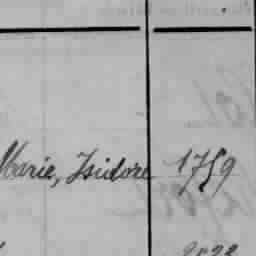 Marie, Isidore 1759